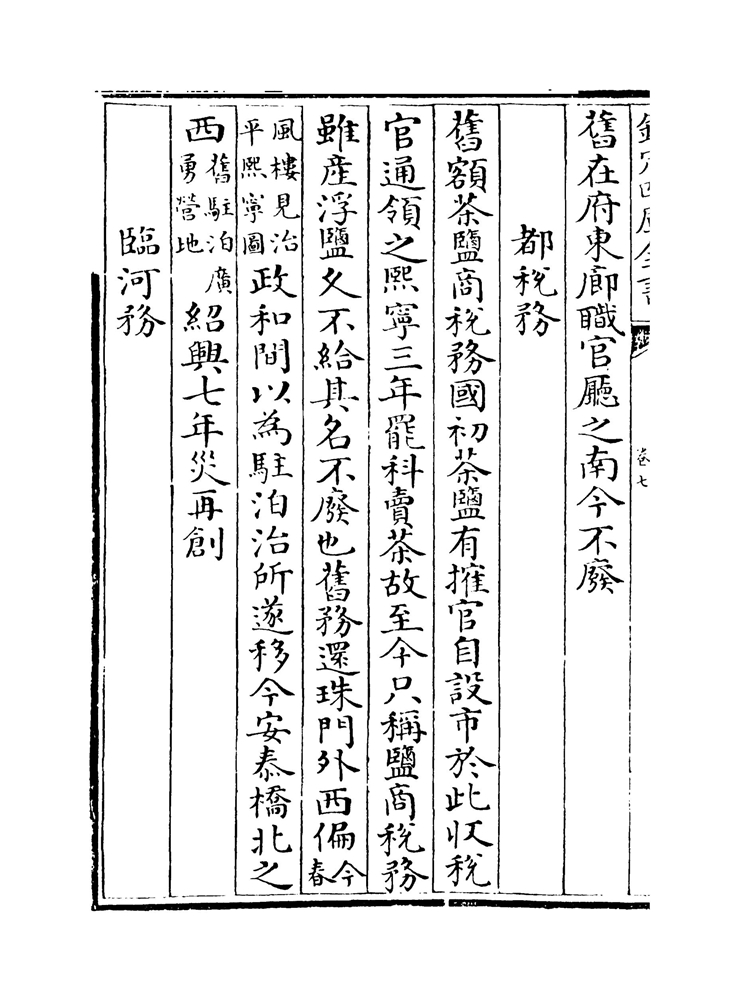 欽定四庫全書
卷七
舊在府東廊職官廳之南今不廢
都稅務
舊額茶鹽商稅務國初茶鹽有搉官自設市於此收稅
官通領之熙寧三年罷科賣茶故至今只稱鹽商稅務
雖産浮鹽久不給其名不廢也舊務還珠門外西偏今春
風樓見治平熙寧圖政和間以為駐泊治所遂移今安泰橋北之
西舊駐泊廣勇營地紹興七年災再創
臨河務